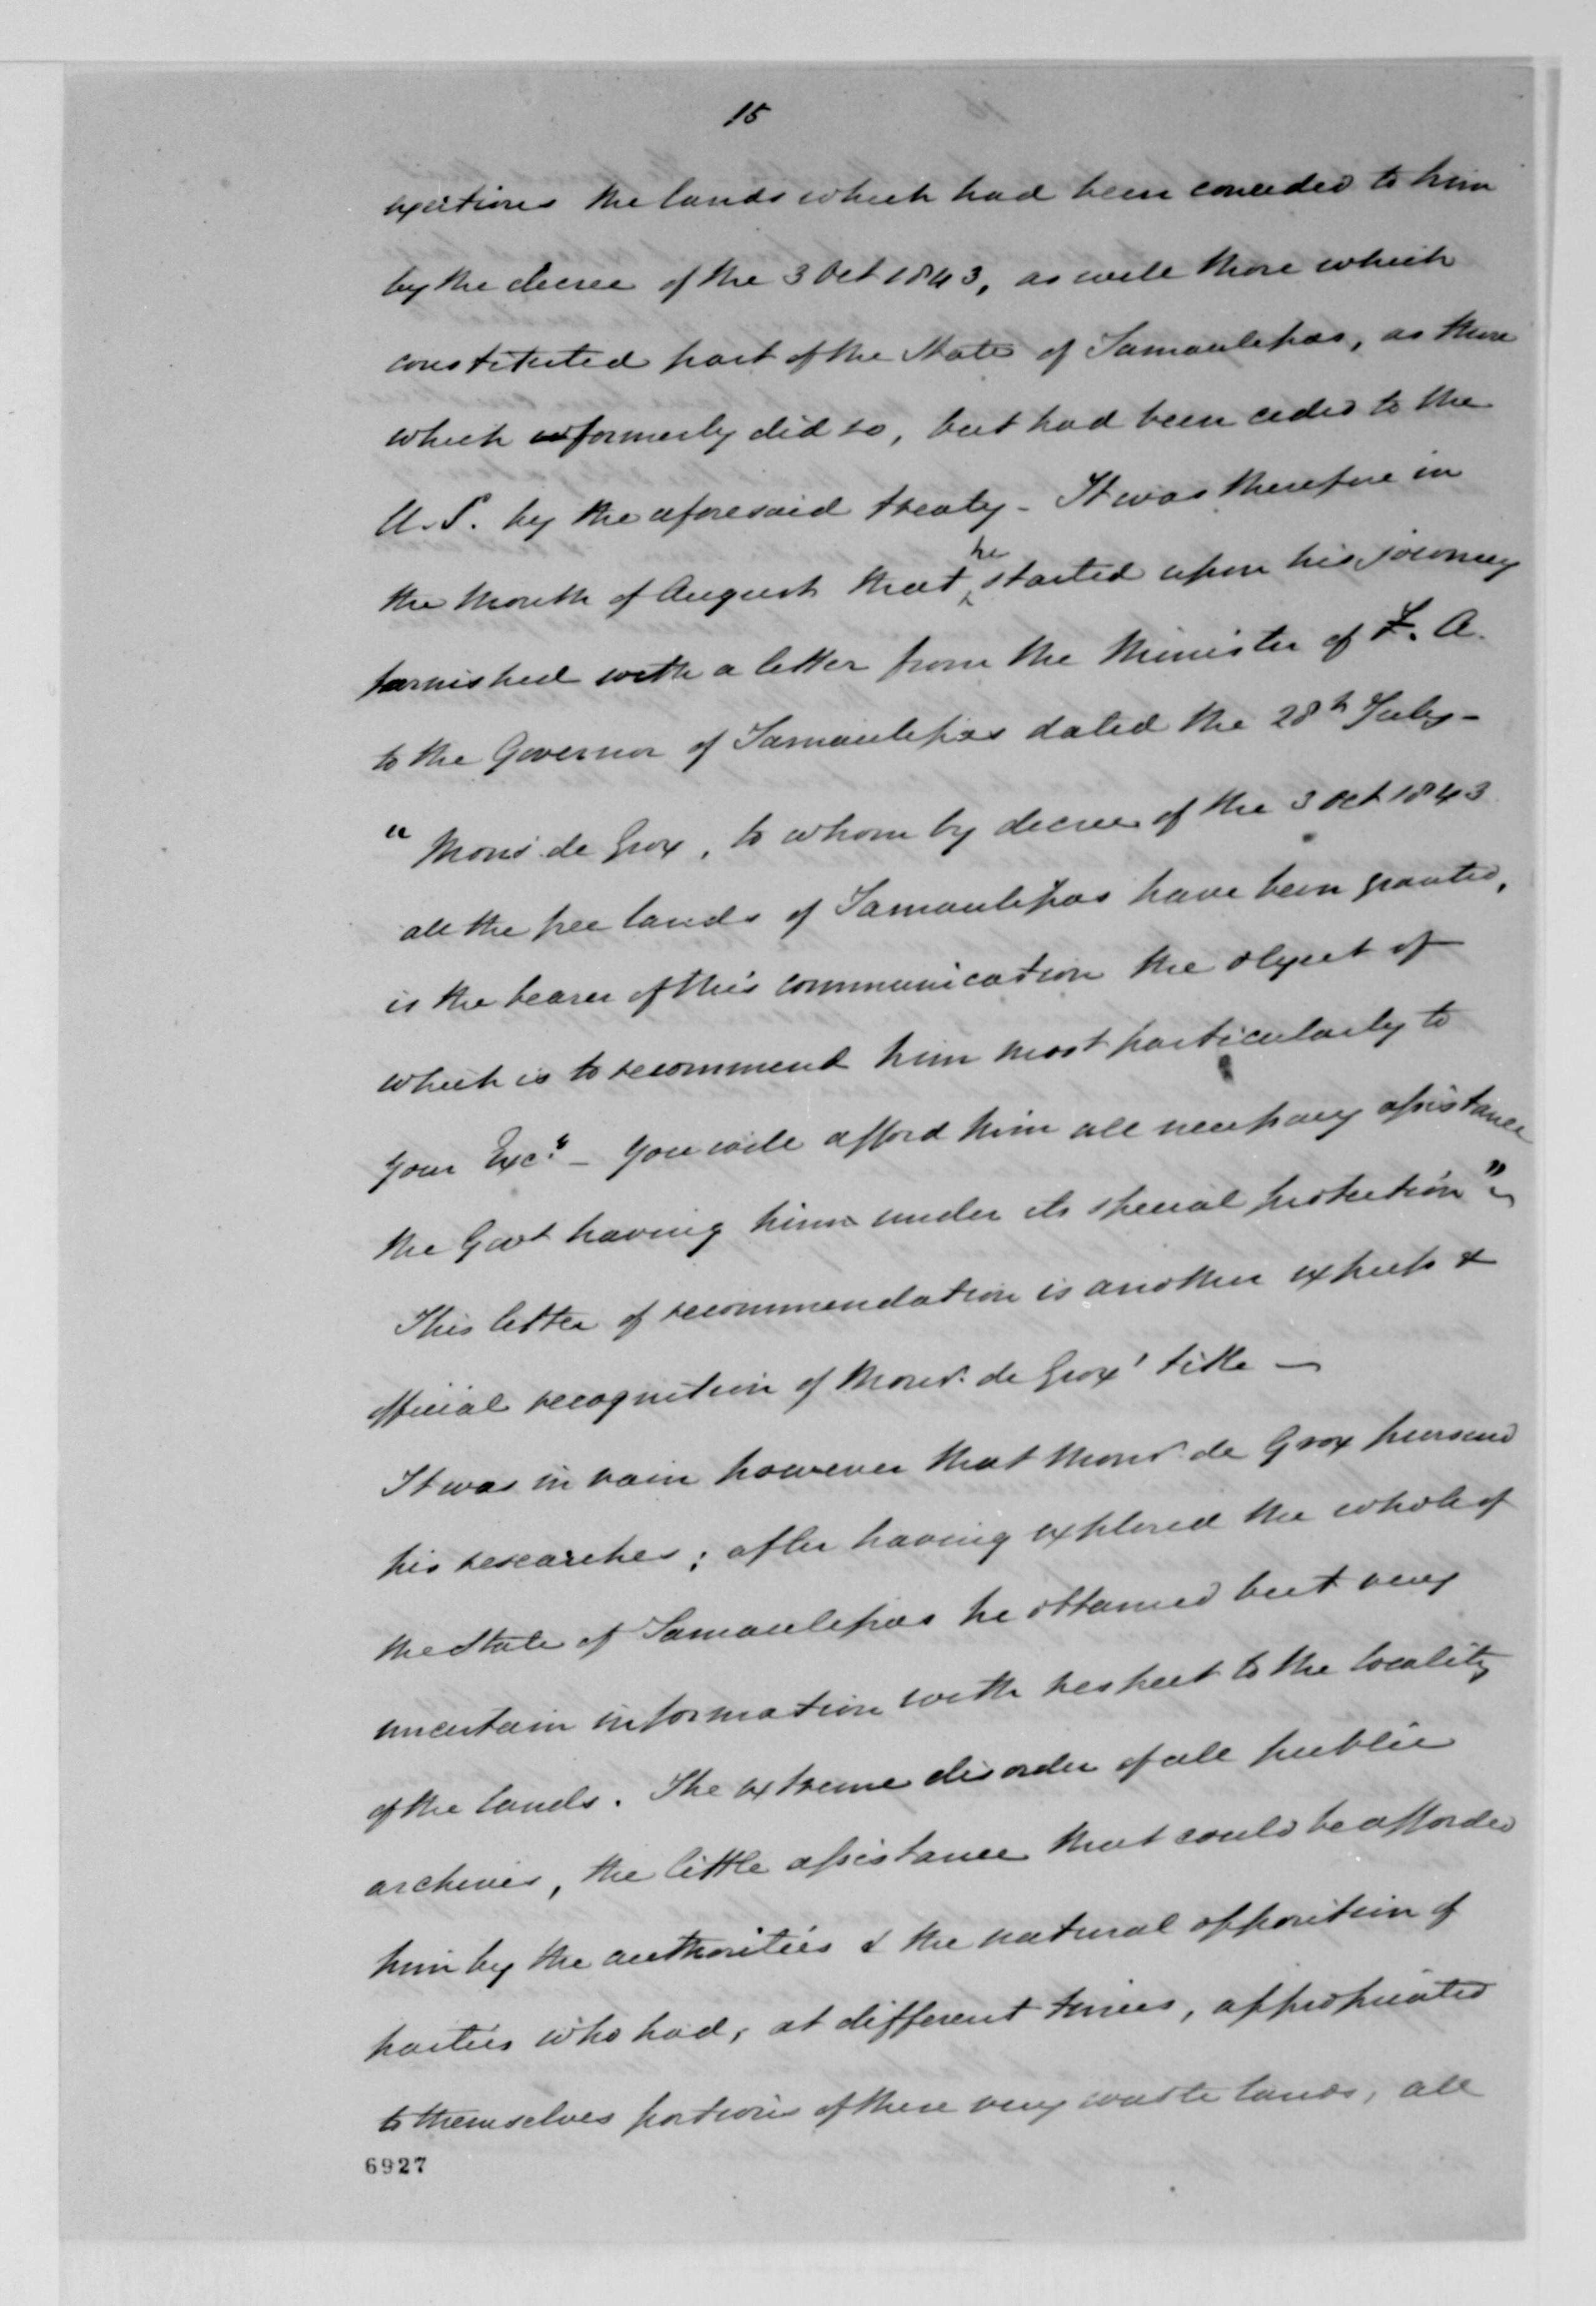 15
exertions the lands which had been conceded to him
by the decree of the 3 Oct 1843, as well those which
constituted part of the State of Tamaulipas, as those
which formerly did so, but had been ceded to the
U.S. by the aforesaid treaty - It was therefore in
the month of August that he started upon his journey
furnished with a letter from the Minister of F. A.
to the Governor of Tamaulipas dated the 28th July -
"Monsr. de Grox, to whom by decree of the 3 Oct 1843
all the free lands of Tamaulipas have been granted,
is the bearer of this communication the object of
which is to recommend him most particularly to
your Excy. - You will afford him all necessary assistance
the Govt having him under its special protection"
This letter of recommendation is another express &
official recognition of Monsr. de Grox' title -
It was in vain however that Monsr. de Grox pursued
his researches; after having explored the whole of
the State of Tamaulipas he obtained but very
uncertain information with respect to the locality
of the lands. The extreme disorder of all public
archives, the little assistance that could be afforded
him by the authorities & the natural opposition of
parties who had, at different times, appropriated
to themselves portions of these very waste lands, all
6927